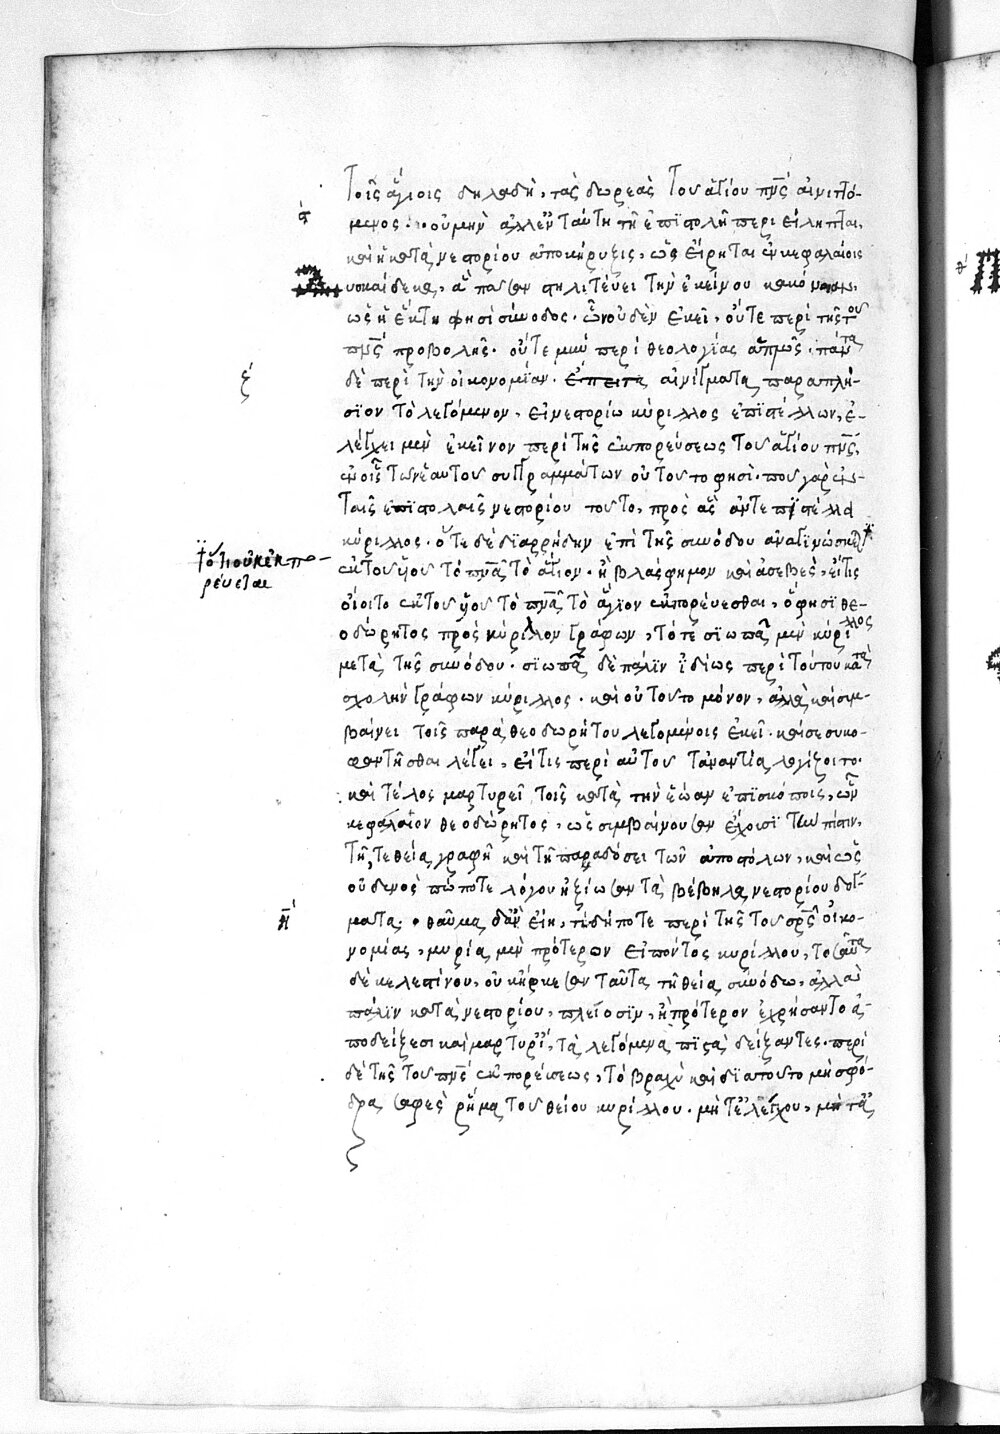 Τοῖς ἁγίοις δηλαδὴ, τὰς δωρεὰς τοῦ ἁγίου πν̅ς αἰνιττό-
μενος· οὐ μὴν ἀλλ' ἐν ταύτῃ τῇ ἐπιστολῇ περιείληπται,
καὶ ἡ κατὰ νεστορίου ἀποκήρυξις, ὡς εἴρηται ἐν κεφαλαίοις
ἃ πᾶσαν στηλιτεύει τὴν ἐκείνου κακόνοιαν,
ὡς ἡ ἕκτη φησὶ σύνοδος. ὧν οὐδὲν ἐκεῖ, οὔτε περὶ τῆς τοῦ
πν̅ς προβολῆς. οὔτε μὴν περὶ θεολογίας ἁπλῶς. πάντα
δὲ περὶ τὴν οἰκονομίαν. αἰνίγματα παραπλή-
σιον τὸ λεγόμενον, εἰ νεστορίω κύριλλος ἐπιστέλλων, ἐ-
λέγχει μὲν ἐκεῖνον περὶ τῆς ἐκπορεύσεως τοῦ ἁγίου πν̅ς,
ἐν οἷς τῶν ἑαυτοῦ συγγραμμάτων οὐ τοῦτο φησὶ. ποῦ γὰρ ἐν
ταῖς ἐπιστολαῖς νεστορίου τοῦτο, πρὸς ἃς ἀντεπιστέλλει
κύριλλος. ὅτε δὲ διαρρήδην ἐπὶ τῆς συνόδου ἀναγινώσκει
ἐκ τοῦ υἱοῦ τὸ πν̅α τὸ ἅγιον. ἢ βλάσφημον καὶ ἀσεβὲς, εἴ τις
οἴοιτο ἐκ τοῦ υἱοῦ τὸ πν̅α τὸ ἅγιον ἐκπορεύεσθαι, ὅ φησι θε-
οδώρητος πρὸς κύριλλον γράφων, τότε σιωπᾶ μὲν κύριλλος
μετὰ τῆς συνόδου. σιωπᾶ δὲ πάλιν ἰδίως περὶ τούτου κατὰ
σχολὴν γράφων κύριλλος. καὶ οὐ τοῦτο μόνον, ἀλλὰ καὶ συμ-
βαίνει τοῖς παρὰ θεοδωρήτου λεγομένοις ἐκεῖ. καὶ σεσυκο-
φαντῆσθαι λέγει, εἴ τις περὶ αὐτοῦ τἀναντία λογίζοιτο.
καὶ τέλος μαρτυρεῖ τοῖς κατὰ τὴν ἑώαν ἐπισκόποις, ὧν
κεφάλαιον θεοδώρητος, ὡς συμβαίνουσαν ἔχοισι τὴν πίστιν,
τῇ τε θεία γραφῇ καὶ τῇ παραδόσει τῶν ἀποστόλων, καὶ ὡς
οὐδενὸς πώποτε λόγου ἠξίωσαν τὰ βέβηλα νεστορίου δόγ-
ματα. θαῦμα δ' ἂν εἴη, τί δήποτε περὶ τῆς τοῦ σρ̅ς οἰκο-
νομίας, μυρία μὲν πρότερον εἰπόντος κυρίλλου, τοσαῦτα
δὲ κελεστίνου, οὐκ ἤρκεσαν ταῦτα τῇ θεία συνόδω, ἀλλὰ
πάλιν κατὰ νεστορίου, πλείοσιν, ἢ πρότερον ἐχρήσαντο ἀ-
ποδείξεσι καὶ μαρτυρί, τὰ λεγόμενα πιστὰ δείξαντες. περὶ
δὲ τῆς τοῦ πν̅ς ἐκπορεύσεως, τὸ βραχὺ καὶ διὰ τοῦτο μὴ σφό-
δρα σαφὲς ῥῆμα τοῦ θείου κυρίλλου. μὴ τ' ἐλέγχου, μὴ τὰ
ὅτι οὐκ ἐκπο-
ρεύεται